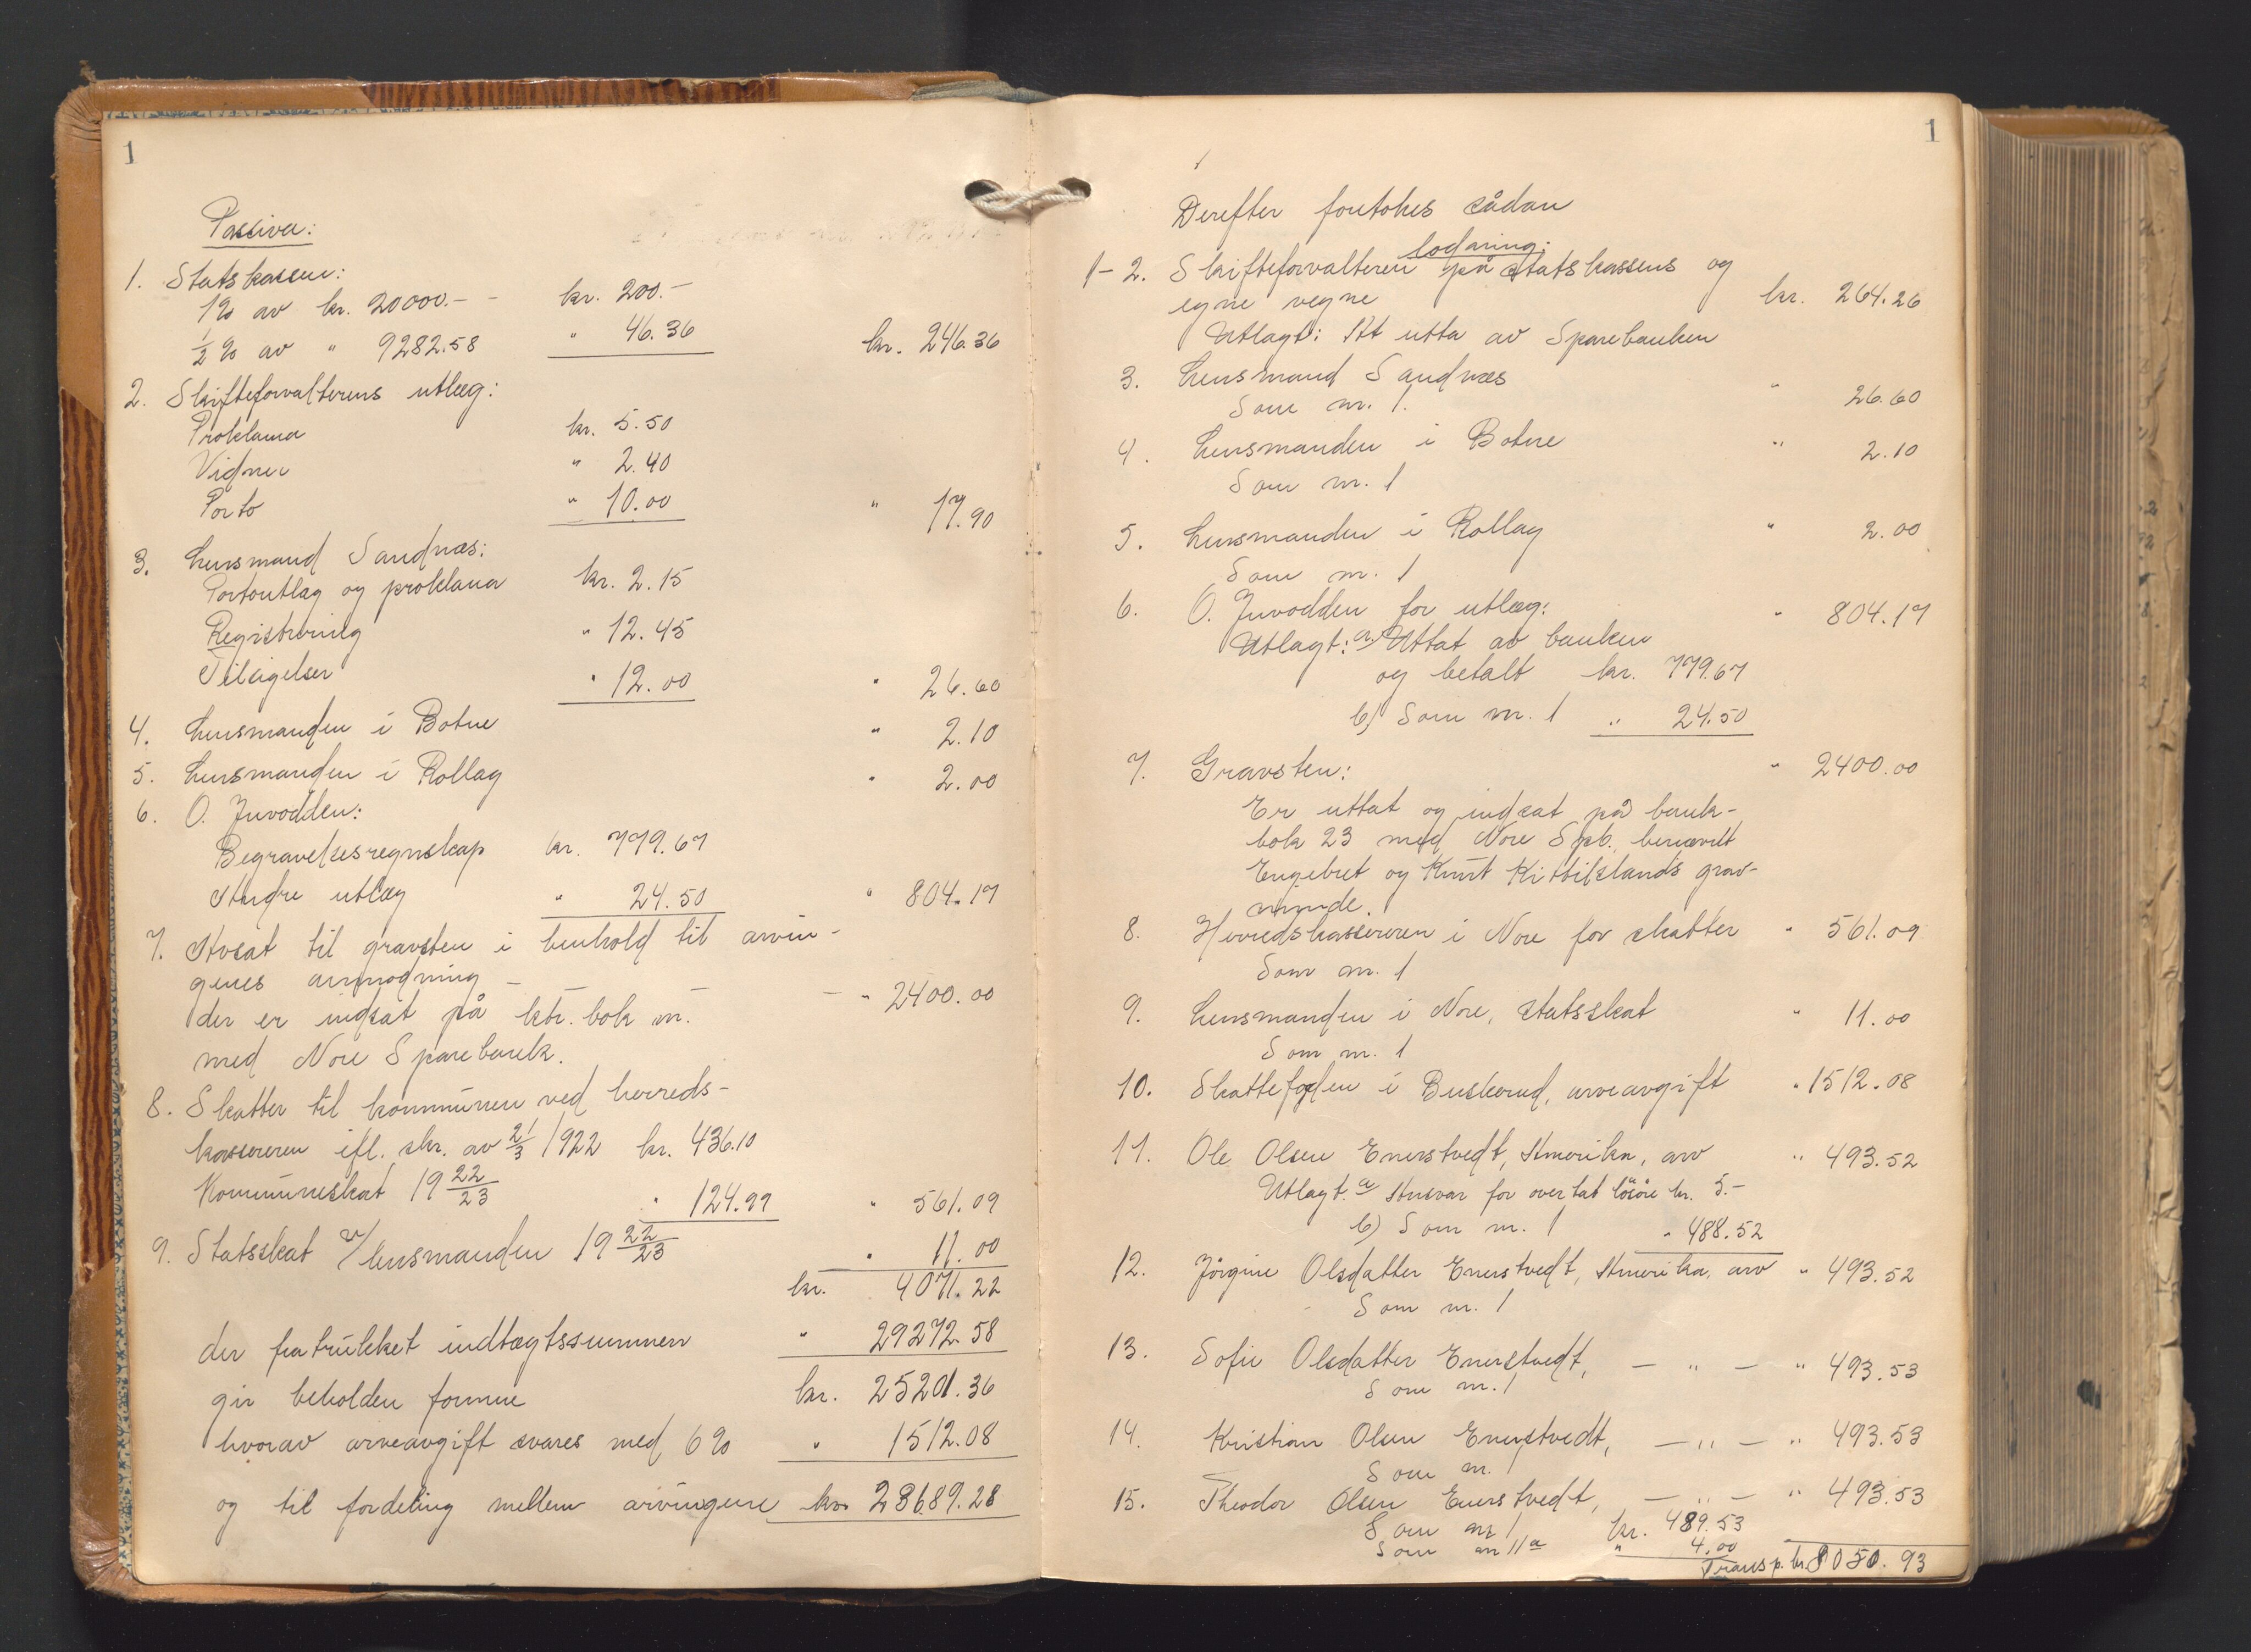 1
Passiva:
1. Statskassen:
1% av kr. 20000.- - kr. 200.-
1/2 % av " 9282.58 " 46.36 kr. 246.36
2. Skifteforvalterens utlæg:
Proklama kr. 5.50
Vidner " 2.40
Porto " 10.00 " 17.90
3. Lensmand Sandnæs:
Portoutlag og proklama kr. 2.15
Registrering " 12.45
Tilsigelser " 12.00 " 26.60
4. Lensmanden i Botne " 2.10
5. Lensmanden i Rollag " 2.00
6. O. Juvodden:
Begravelsesregnskap kr. 779.67
Andre utlæg " 24.50 " 804.17
7. Avsat til gravsten i henhold til arvin-
genes anmodning - - - - " 2400.00
der er indsat på ktr. bok nr.
med Nore Sparebank.
8. Skatter til kommunen ved herreds-
kassereren ifl. skr. av 21/3 1922 kr. 436.10
Kommuneskat 19 22/23 " 124.99 " 561.09
9. Statsskat v/ lensmanden 19 22/23 " 11.00
kr. 4071.22
der fratrukket indtægtssummen " 29272.58
gir beholden formue kr. 25201.36
hvorav arveavgift svares med 6% " 1512.08
og til fordeling mellem arvingene kr. 23689.28
1
Derefter foretokes sådan
lodning:
1-2. Skifteforvalteren på statskassens og
egne vegne kr. 264.26
Utlagt: At utta av Sparebanken
3. Lensmand Sandnæs " 26.60
Som nr. 1.
4. Lensmanden i Botne " 2.10
Som nr. 1
5. Lensmanden i Rollag " 2.00
Som nr. 1
6. O. Juvodden for utlæg: " 804.17
Utlagt: a) Uttat av banken
og betalt kr. 779.67
b) Som nr. 1 " 24.50
7. Gravsten: " 2400.00
Er uttat og indsat på bank-
bok 23 med Nore Spb. benævnt
Engebret og Knut Kittilslands grav-
minde.
8. Herredskassereren i Nore for skatter " 561.09
Som nr. 1
9. Lensmanden i Nore, statsskat " 11.00
Som nr. 1
10. Skattefogden i Buskerud, arveavgift " 1512.08
11. Ole Olsen Enerstvedt, Amerika, arv " 493.52
Utlagt. a Ansvar for overtat løsøre kr. 5.-
b) Som nr. 1 " 488.52
12. Jörgine Olsdatter Enerstvedt, Amerika, arv " 493.52
Som nr. 1
13. Sofie Olsdatter Enerstvedt, - " - " 493.53
Som nr. 1
14. Kristian Olsen Enerstvedt, - " - " 493.53
Som nr. 1
15. Theodor Olsen Enerstvedt, - " - " 493.53
Som nr 1 kr. 489.53
Som nr 11 a " 4.00
Transp. kr. 8050.93